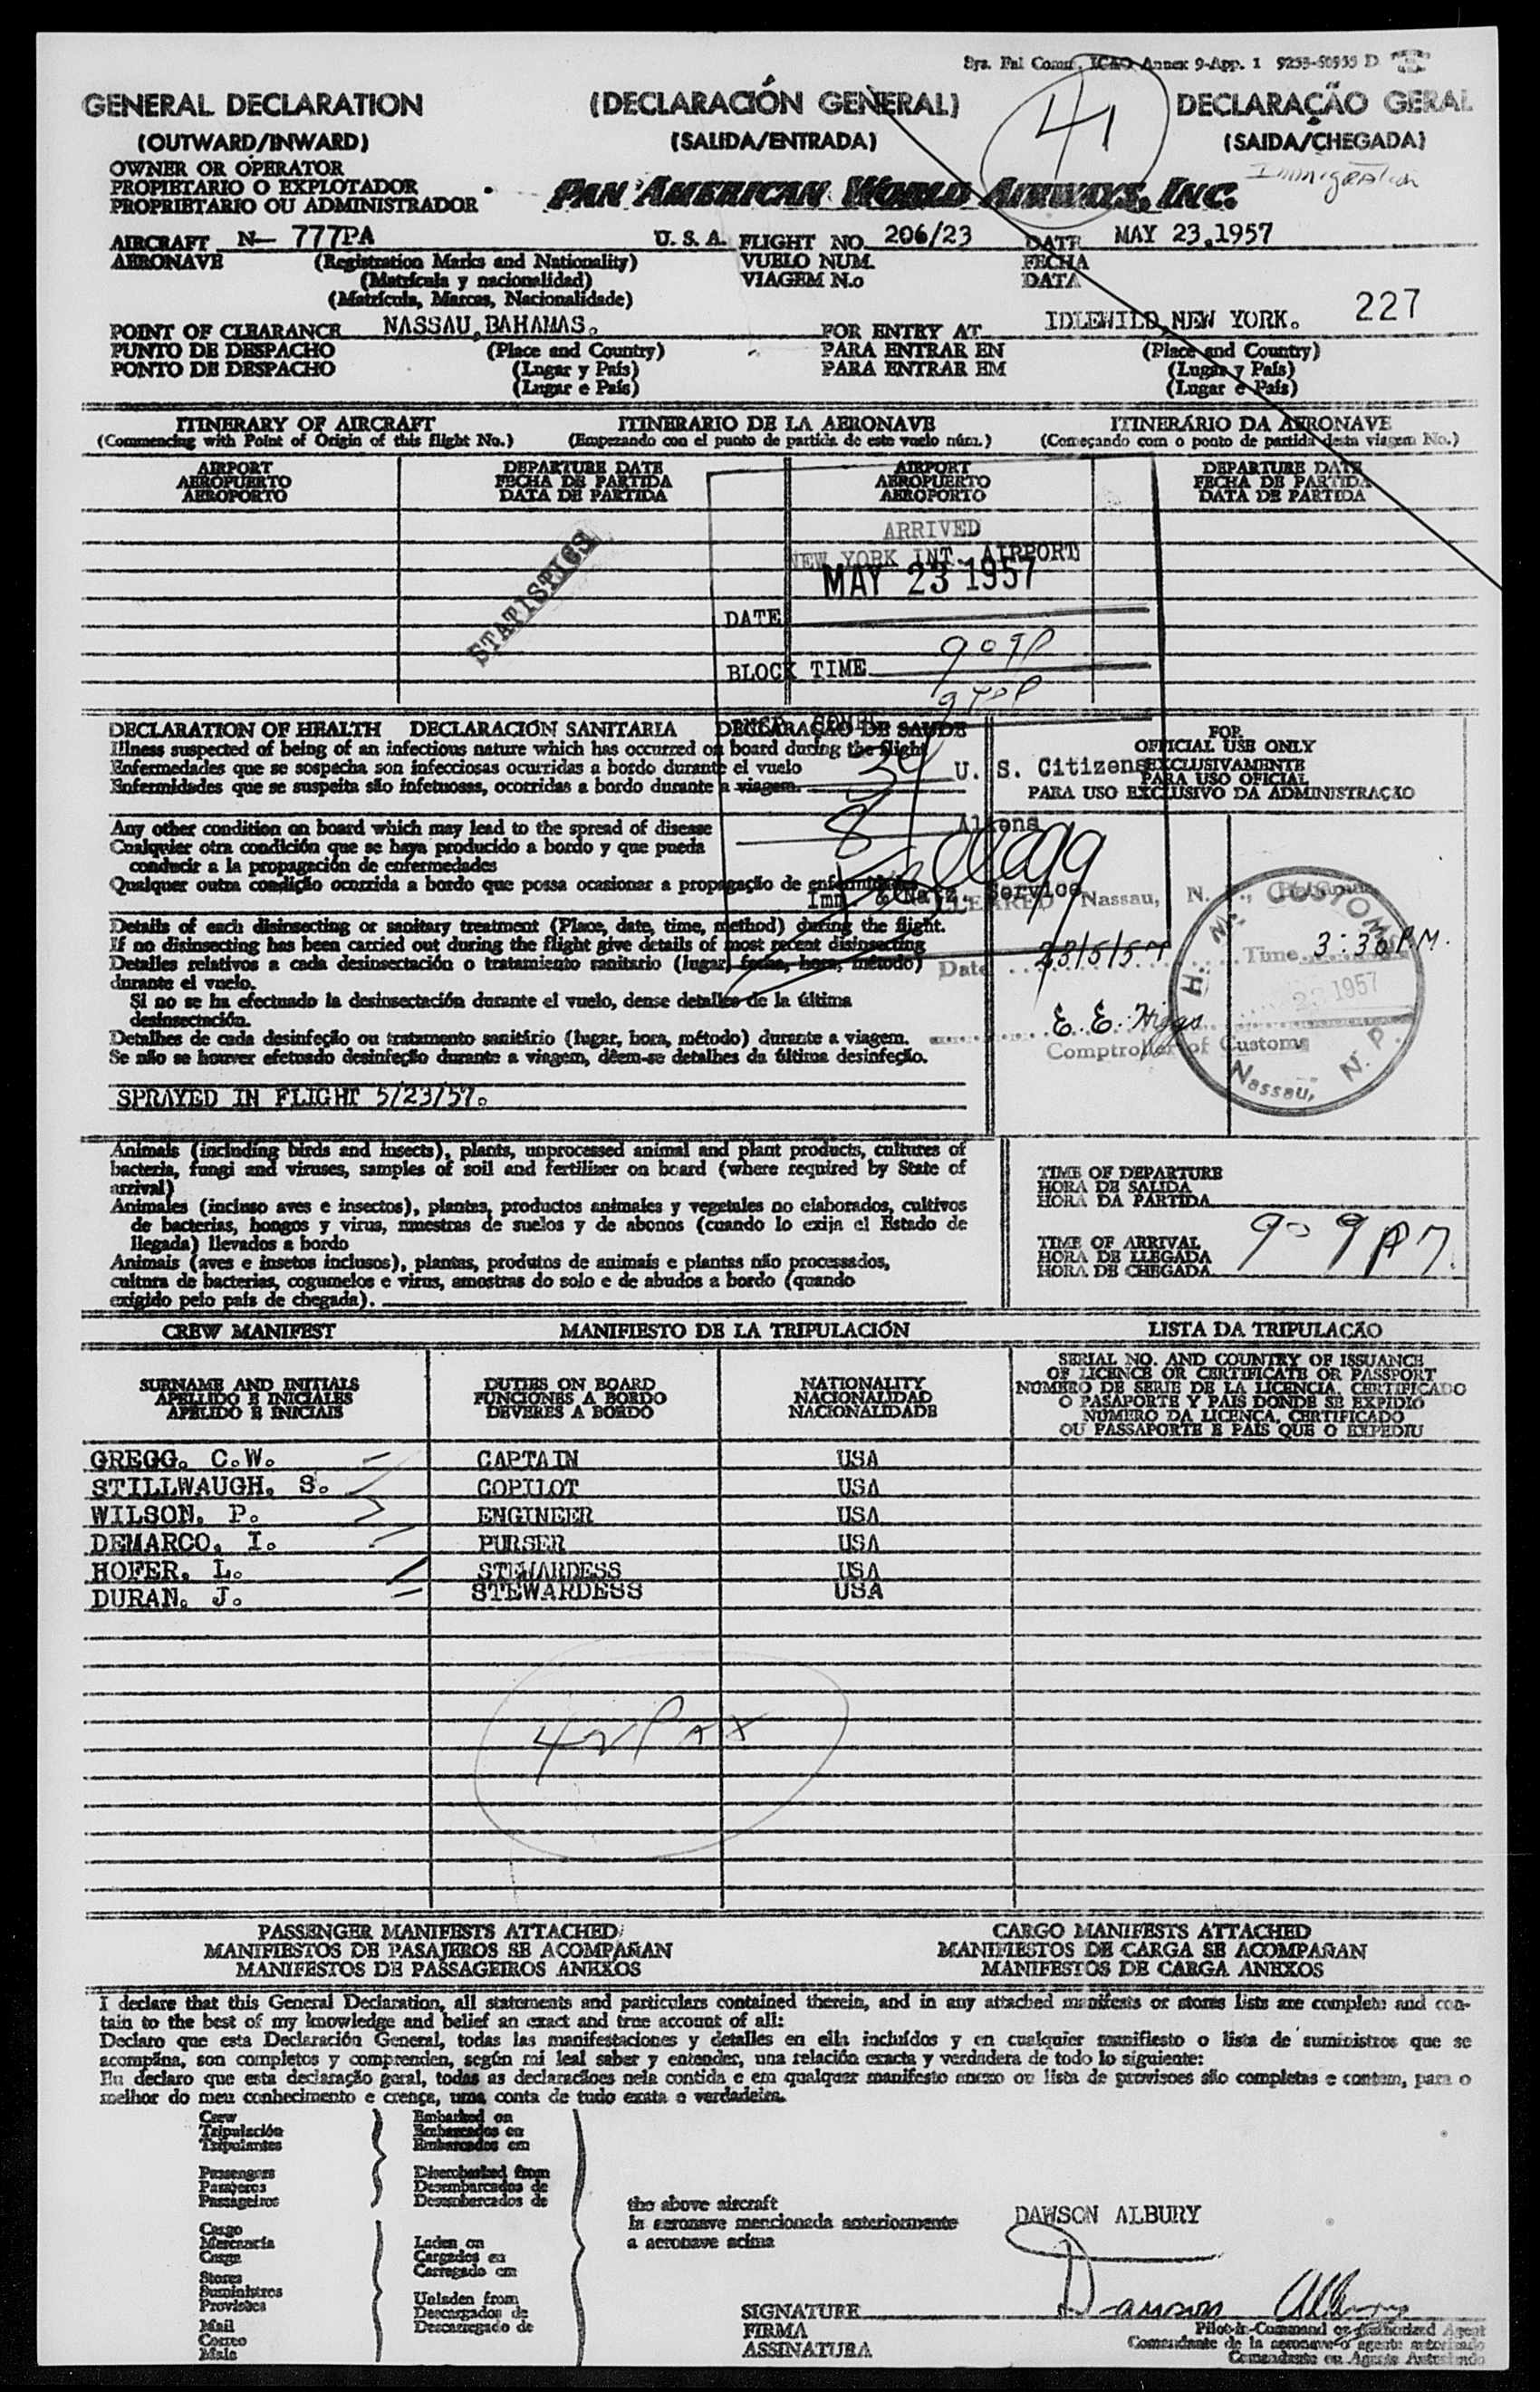 Sys. Fal Comm. ICAO Annex 9-App. 1 9255-50955 D
GENERAL DECLARATION (DECLARACIÓN GENERAL) DECLARAÇÃO GERAL
41
(OUTWARD/INWARD) (SALIDA/ENTRADA) (SAIDA/CHEGADA)
Immigration
OWNER OR OPERATOR
PROPIETARIO O EXPLOTADOR
PROPRIETARIO OU ADMINISTRADOR
PAN AMERICAN WORLD AIRWAYS, INC.
AIRCRAFT N- 777PA U. S. A. FLIGHT NO. 206/23 DATE MAY 23,1957
AERONAVE (Registration Marks and Nationality) VUELO NUM. FECHA
(Matrícula y nacionalidad) VIAGEM N.o DATA
(Matrícula, Marcas, Nacionalidade)
227
POINT OF CLEARANCE NASSAU,BAHAMAS. FOR ENTRY AT IDLEWILD,NEW YORK.
PUNTO DE DESPACHO (Place and Country) PARA ENTRAR EN (Place and Country)
PONTO DE DESPACHO (Lugar y País) PARA ENTRAR EM (Lugar y País)
(Lugar e País) (Lugar e País)
ITINERARY OF AIRCRAFT ITINERARIO DE LA AERONAVE ITINERÁRIO DA AERONAVE
(Commencing with Point of Origin of this flight No.) (Empezando con el punto de partida de este vuelo núm.) (Começando com o ponto de partida desta viagem No.)
AIRPORT DEPARTURE DATE AIRPORT DEPARTURE DATE
AEROPUERTO FECHA DE PARTIDA AEROPUERTO FECHA DE PARTIDA
AEROPORTO DATA DE PARTIDA AEROPORTO DATA DE PARTIDA
STATISTICS
ARRIVED
NEW YORK INT. AIRPORT
MAY 23 1957
DATE
BLOCK TIME 909P
940P
DECLARATION OF HEALTH DECLARACIÓN SANITARIA DECLARAÇÃO DE SAUDE
Illness suspected of being of an infectious nature which has occurred on board during the flight
Enfermedades que se sospecha son infecciosas ocurridas a bordo durante el vuelo
Enfermidades que se suspeita são infetuosas, ocorridas a bordo durante a viagem.
34 U. S. Citizens
8 Aliens
Imm. & Natz. Service
FOR
OFFICIAL USE ONLY
EXCLUSIVAMENTE
PARA USO OFICIAL
PARA USO EXCLUSIVO DA ADMINISTRAÇÃO
Any other condition on board which may lead to the spread of disease
Cualquier otra condición que se haya producido a bordo y que pueda
conducir a la propagación de enfermedades
Qualquer outra condição ocorrida a bordo que possa ocasionar a propagação de enfermidades
CLEARED Nassau, N. P.,
Date 23/5/57 Time 3:30 P.M.
E. E. Higgs
Comptroller of Customs
H. M. CUSTOMS
23 1957
Nassau, N. P.
Details of each disinsecting or sanitary treatment (Place, date, time, method) during the flight.
If no disinsecting has been carried out during the flight give details of most recent disinsecting
Detalles relativos a cada desinsectación o tratamiento sanitario (lugar, fecha, hora, método)
durante el vuelo.
Si no se ha efectuado la desinsectación durante el vuelo, dense detalles de la última
desinsectación.
Detalhes de cada desinfeção ou tratamento sanitário (lugar, hora, método) durante a viagem.
Se não se houver efetuado desinfeção durante a viagem, dêem-se detalhes da última desinfeção.
SPRAYED IN FLIGHT 5/23/57.
Animals (including birds and insects), plants, unprocessed animal and plant products, cultures of
bacteria, fungi and viruses, samples of soil and fertilizer on board (where required by State of
arrival)
Animales (incluso aves e insectos), plantas, productos animales y vegetales no elaborados, cultivos
de bacterias, hongos y virus, muestras de suelos y de abonos (cuando lo exija el Estado de
llegada) llevados a bordo
Animais (aves e insetos inclusos), plantas, produtos de animais e plantas não processados,
cultura de bacterias, cogumelos e virus, amostras do solo e de abudos a bordo (quando
exigido pelo país de chegada).
TIME OF DEPARTURE
HORA DE SALIDA
HORA DA PARTIDA
TIME OF ARRIVAL
HORA DE LLEGADA
HORA DE CHEGADA
909 PM.
CREW MANIFEST MANIFIESTO DE LA TRIPULACIÓN LISTA DA TRIPULAÇÃO
SURNAME AND INITIALS DUTIES ON BOARD NATIONALITY
APELLIDO E INICIALES FUNCIONES A BORDO NACIONALIDAD
APELIDO E INICIAIS DEVERES A BORDO NACIONALIDADE
SERIAL NO. AND COUNTRY OF ISSUANCE
OF LICENCE OR CERTIFICATE OR PASSPORT
NÚMERO DE SERIE DE LA LICENCIA, CERTIFICADO
O PASAPORTE Y PAIS DONDE SE EXPIDIO
NÚMERO DA LICENÇA, CERTIFICADO
OU PASSAPORTE E PAIS QUE O EXPEDIU
GREGG. C.W. CAPTAIN USA
STILLWAUGH. S. COPILOT USA
WILSON. P. ENGINEER USA
DEMARCO. I. PURSER USA
HOFER. L. STEWARDESS USA
DURAN. J. STEWARDESS USA
42 Pax
PASSENGER MANIFESTS ATTACHED CARGO MANIFESTS ATTACHED
MANIFIESTOS DE PASAJEROS SE ACOMPAÑAN MANIFIESTOS DE CARGA SE ACOMPAÑAN
MANIFESTOS DE PASSAGEIROS ANEXOS MANIFESTOS DE CARGA ANEXOS
I declare that this General Declaration, all statements and particulars contained therein, and in any attached manifests or stores lists are complete and con-
tain to the best of my knowledge and belief an exact and true account of all:
Declaro que esta Declaración General, todas las manifestaciones y detalles en ella incluídos y en cualquier manifiesto o lista de suministros que se
acompãna, son completos y comprenden, según mi leal saber y entender, una relación exacta y verdadera de todo lo siguiente:
Eu declaro que esta declaração goral, todas as declaracãoes nela contida e em qualquer manifesto anexo ou lista de provisoes são completas e contem, para o
melhor do meu conhecimento e crença, uma conta de tudo exata e verdadeira.
Crew Embarked on
Tripulación Embarcados en
Tripulantes Embarcados em
Passengers Disembarked from
Pasajeros Desembarcados de
Passageiros Desembarcados de
Cargo
Mercancía Laden on
Carga Cargados en
Stores Carregado em
Suministros
Provisões Unladen from
Mail Descargados de
Correo Descarregado de
Mala
the above aircraft
la aeronave mencionada anteriormente
a aeronave acima
DAWSON ALBURY
SIGNATURE Dawson Albury
FIRMA
ASSINATURA
Pilot-in-Command or Authorized Agent
Comandante de la aeronave o agente autorizado
Comandante ou Agente Autorisado